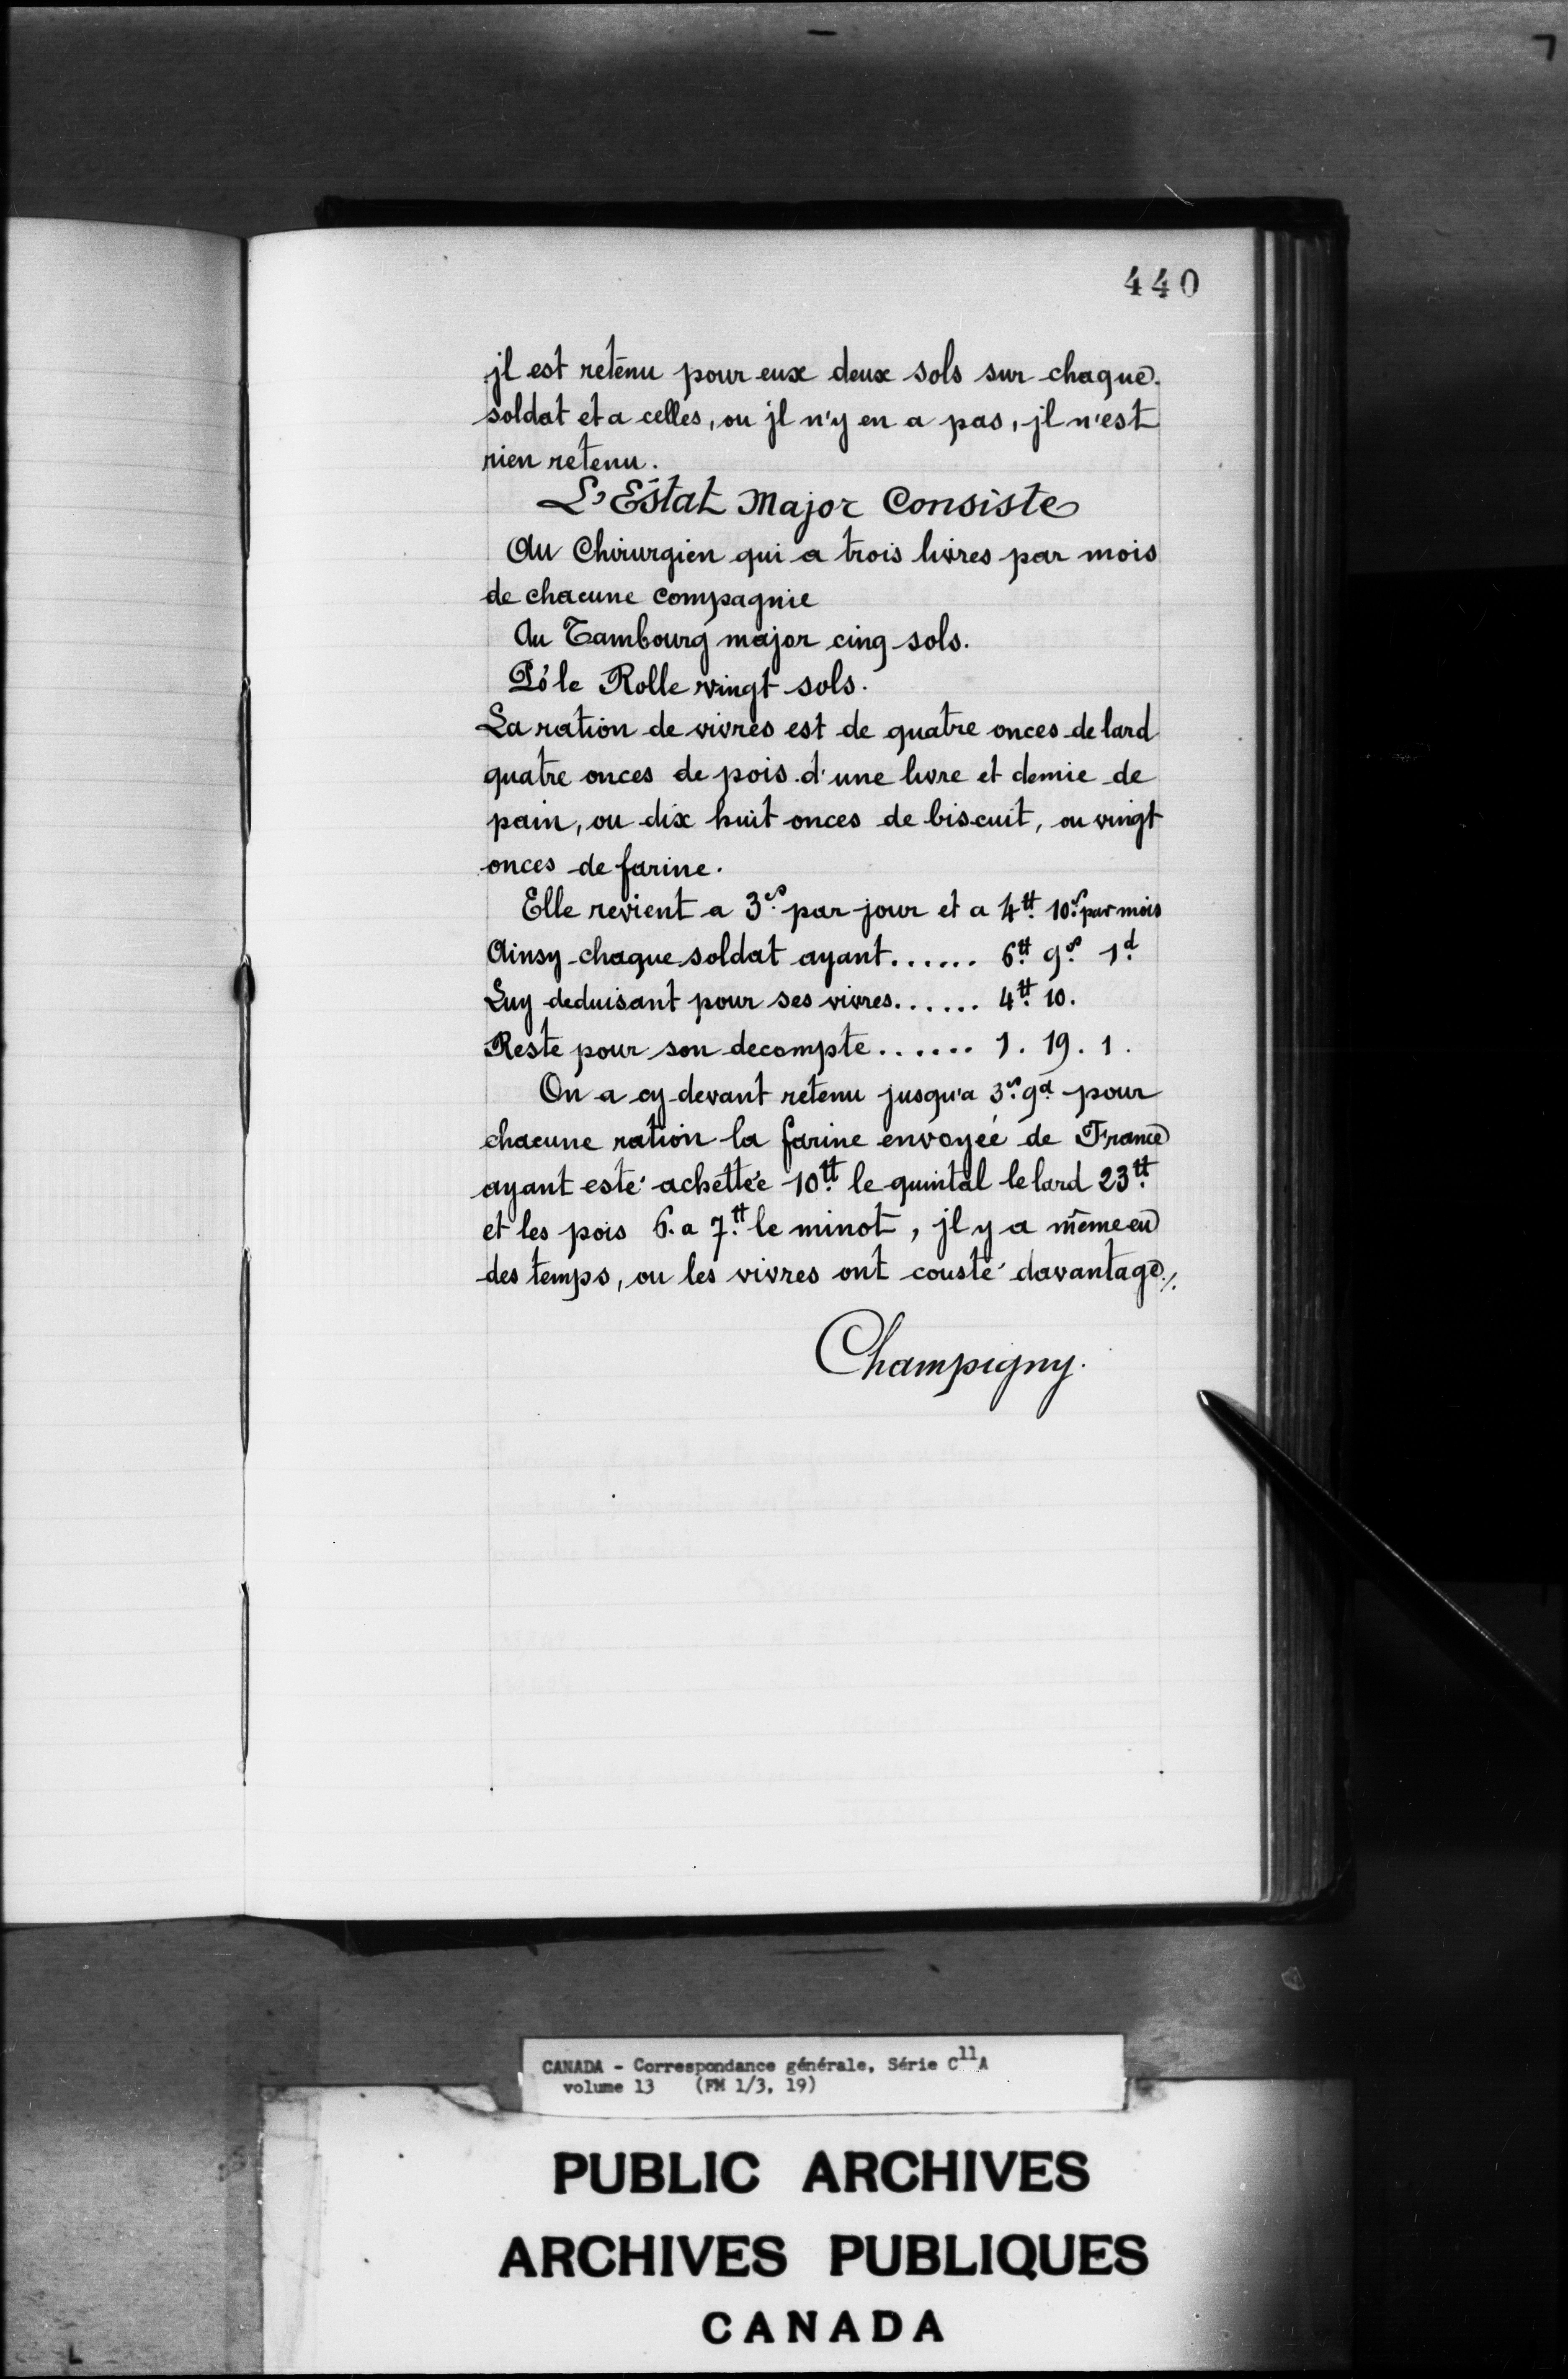 440
jl est retenu pour eux deux sols sur chaque
soldat et a celles, ou jl n'y en a pas, jl n'est
rien retenu.
L'Estat Major Consiste
Au Chirurgien qui a trois livres par mois
de chacune compagnie
Au Tambourg major cinq sols.
Po' le Rolle vingt sols.
La ration de vivres est de quatre onces de lard
quatre onces de pois d'une livre et demie de
pain, ou dix huit onces de biscuit, ou vingt
onces de farine.
Elle revient a 3.s par jour et a 4.tt 10.s par mois
Ainsy chaque soldat ayant...... 6.tt 9.s 1.d
Luy deduisant pour ses vivres...... 4.tt 10.
Reste pour son decompte...... 1. 19. 1.
On a cy devant retenu jusqu'a 3.s 9.d pour
chacune ration la farine envoyée de France
ayant esté achettée 10.tt le quintal le lard 23.tt
et les pois 6. a 7.tt le minot, jl y a même eu
des temps, ou les vivres ont cousté davantage./.
Champigny.
CANADA - Correspondance générale, Série C11A
volume 13 (FM 1/3, 19)
PUBLIC ARCHIVES
ARCHIVES PUBLIQUES
CANADA